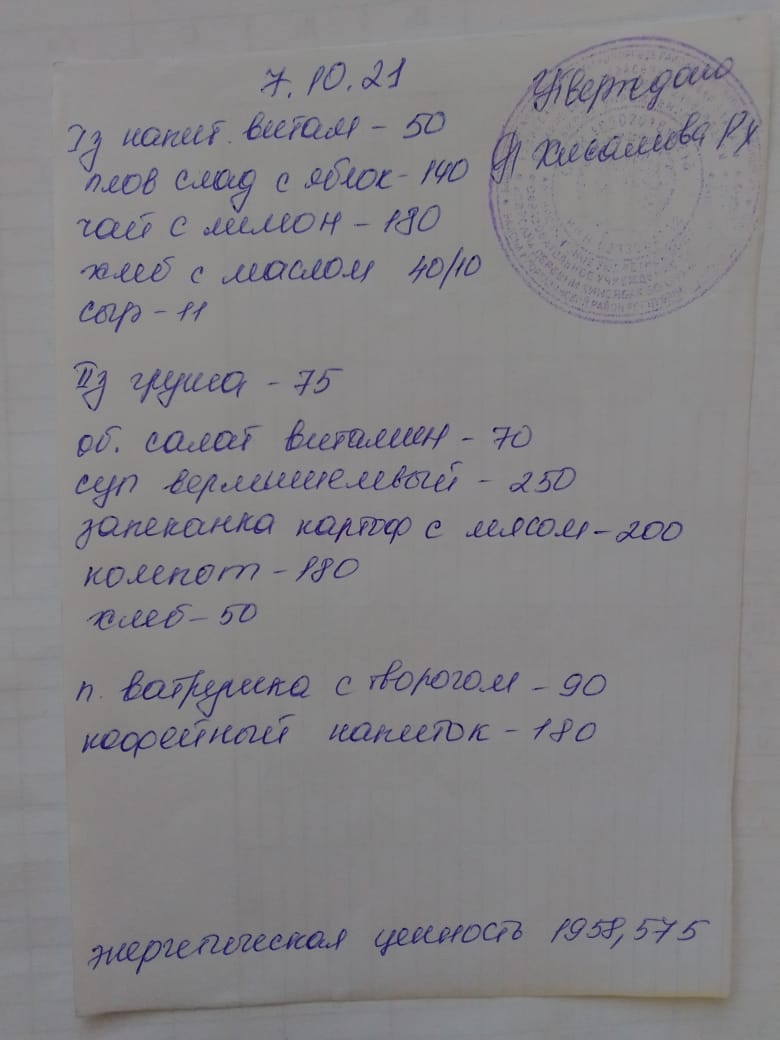 7.10.21
Утверждаю
Хисамова РХ
Iз напит. витам - 50
плов слад с яблок - 140
чай с лимон - 180
хлеб с маслом 40/10
сыр - 11
IIз груша - 75
об. салат витамин - 70
суп вермишелевый - 250
запеканка картоф с мясом - 200
компот - 180
хлеб - 50
п. ватрушка с творогом - 90
кофейный напиток - 180
энергетическая ценность 1958,575